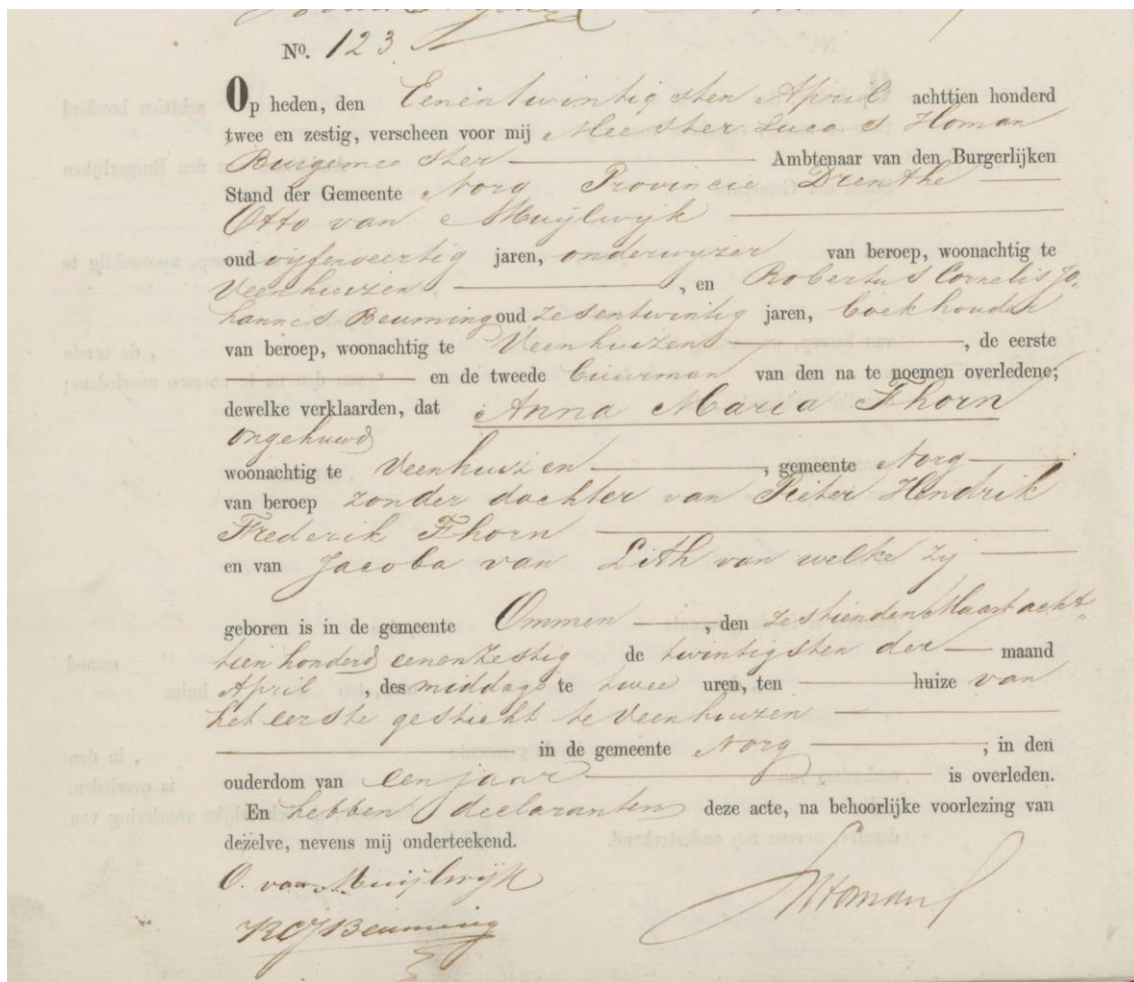 No. 123.
Op heden, den Eenentwintigsten April achttien honderd
twee en zestig, verscheen voor mij Meester Lucas Homan
Burgemeester Ambtenaar van den Burgerlijken
Stand der Gemeente Norg Provincie Drenthe
Otto van Muijlwijk
oud vijfenveertig jaren, onderwijzer van beroep, woonachtig te
Veenhuizen, en Robertus Cornelis Jo-
hannes Beuming oud zesentwintig jaren, boekhouder
van beroep, woonachtig te Veenhuizen, de eerste
en de tweede buurman van den na te noemen overledene;
dewelke verklaarden, dat Anna Maria Thorn
ongehuwd
woonachtig te Veenhuizen, gemeente Norg
van beroep zonder dochter van Pieter Hendrik
Frederik Thorn
en van Jacoba van Lith van welke zij
geboren is in de gemeente Ommen, den zestienden Maart acht-
tien honderd eenenzestig de twintigsten der maand
April, des middags te twee uren, ten huize van
het eerste gesticht te Veenhuizen
in de gemeente Norg, in den
ouderdom van een jaar is overleden.
En hebben declaranten deze acte, na behoorlijke voorlezing van
dezelve, nevens mij onderteekend.
O. van Muijlwijk
RCJ Beuming
LHoman